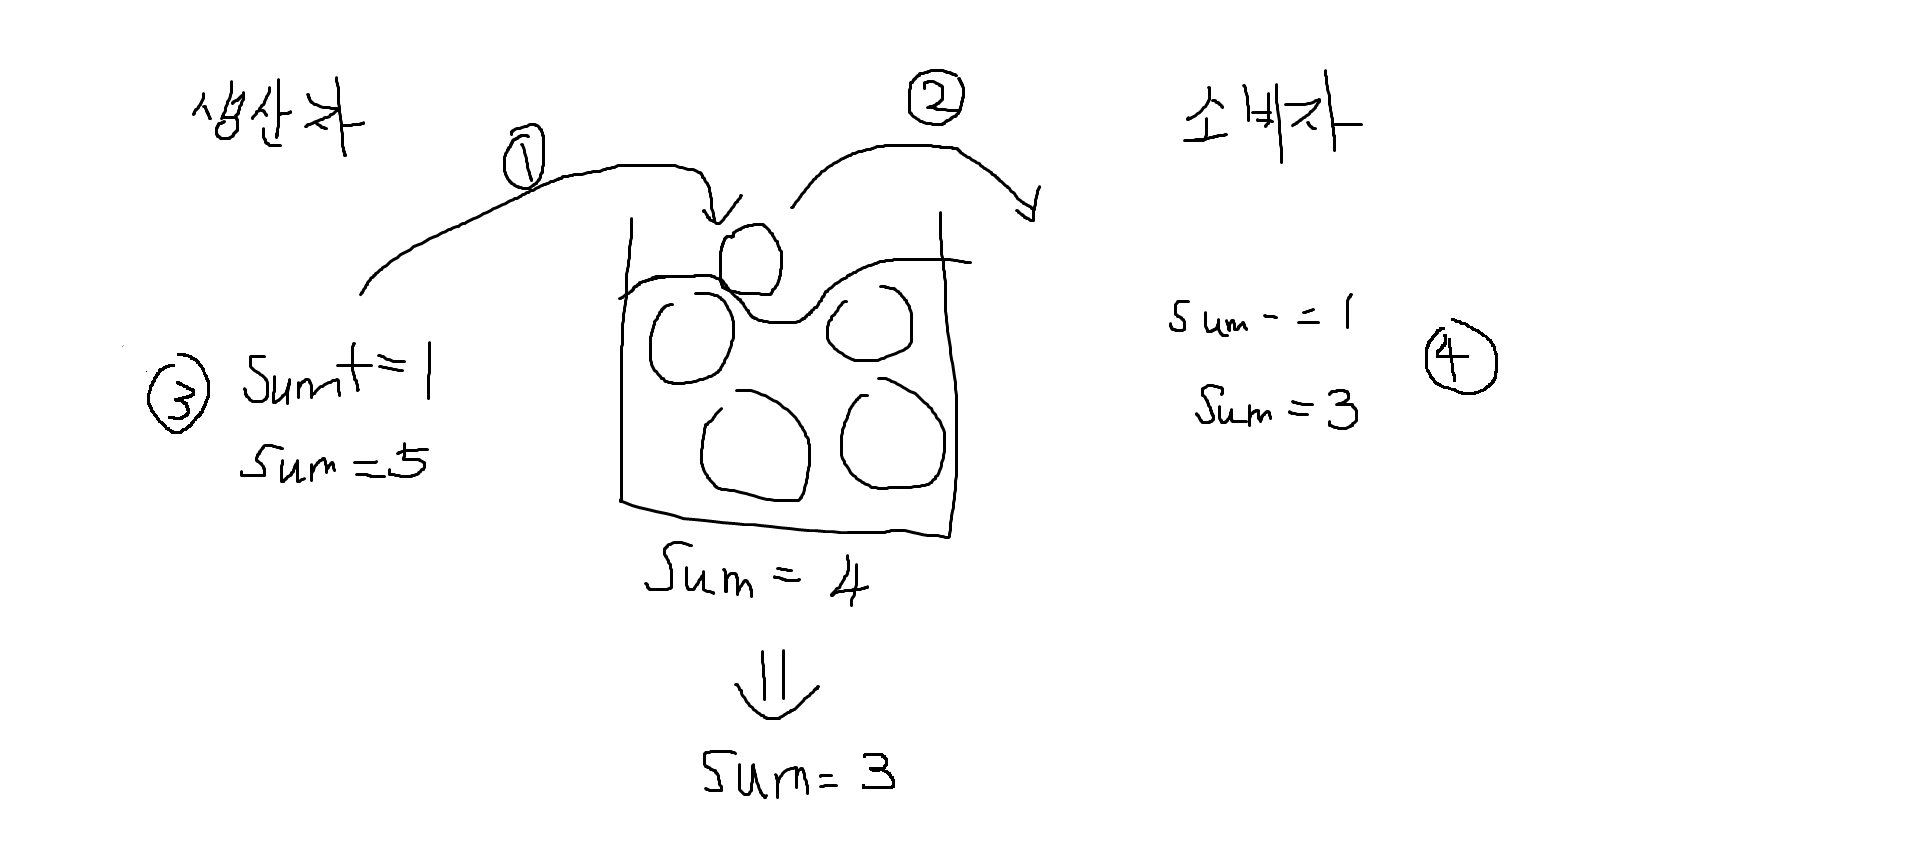 생산자
①
②
소비자
③ Sum+=1
Sum=5
Sum-=1
④
Sum=3
Sum=4
Sum=3